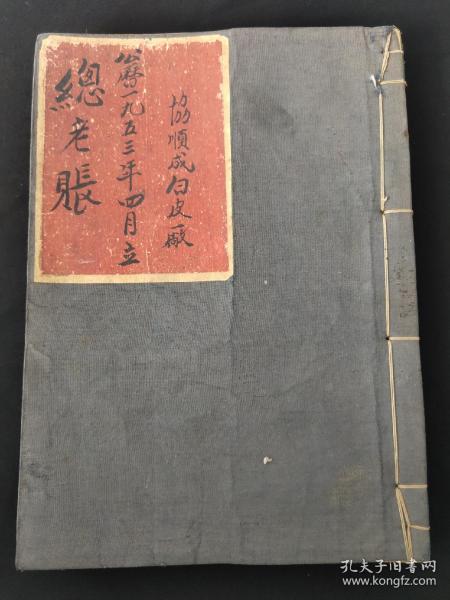 協順成白皮廠
公曆一九五三年四月立
總老賬
孔夫子旧书网
www.kongfz.com